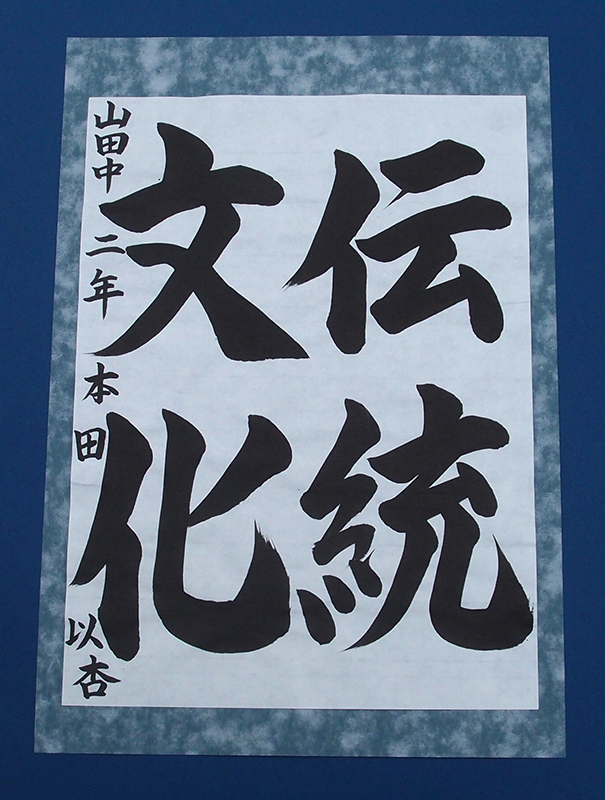 伝統
文化
山田中 二年 本田 以杏